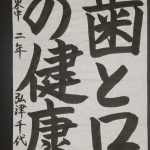 歯と口
の健康
東中 二年 弘津千代